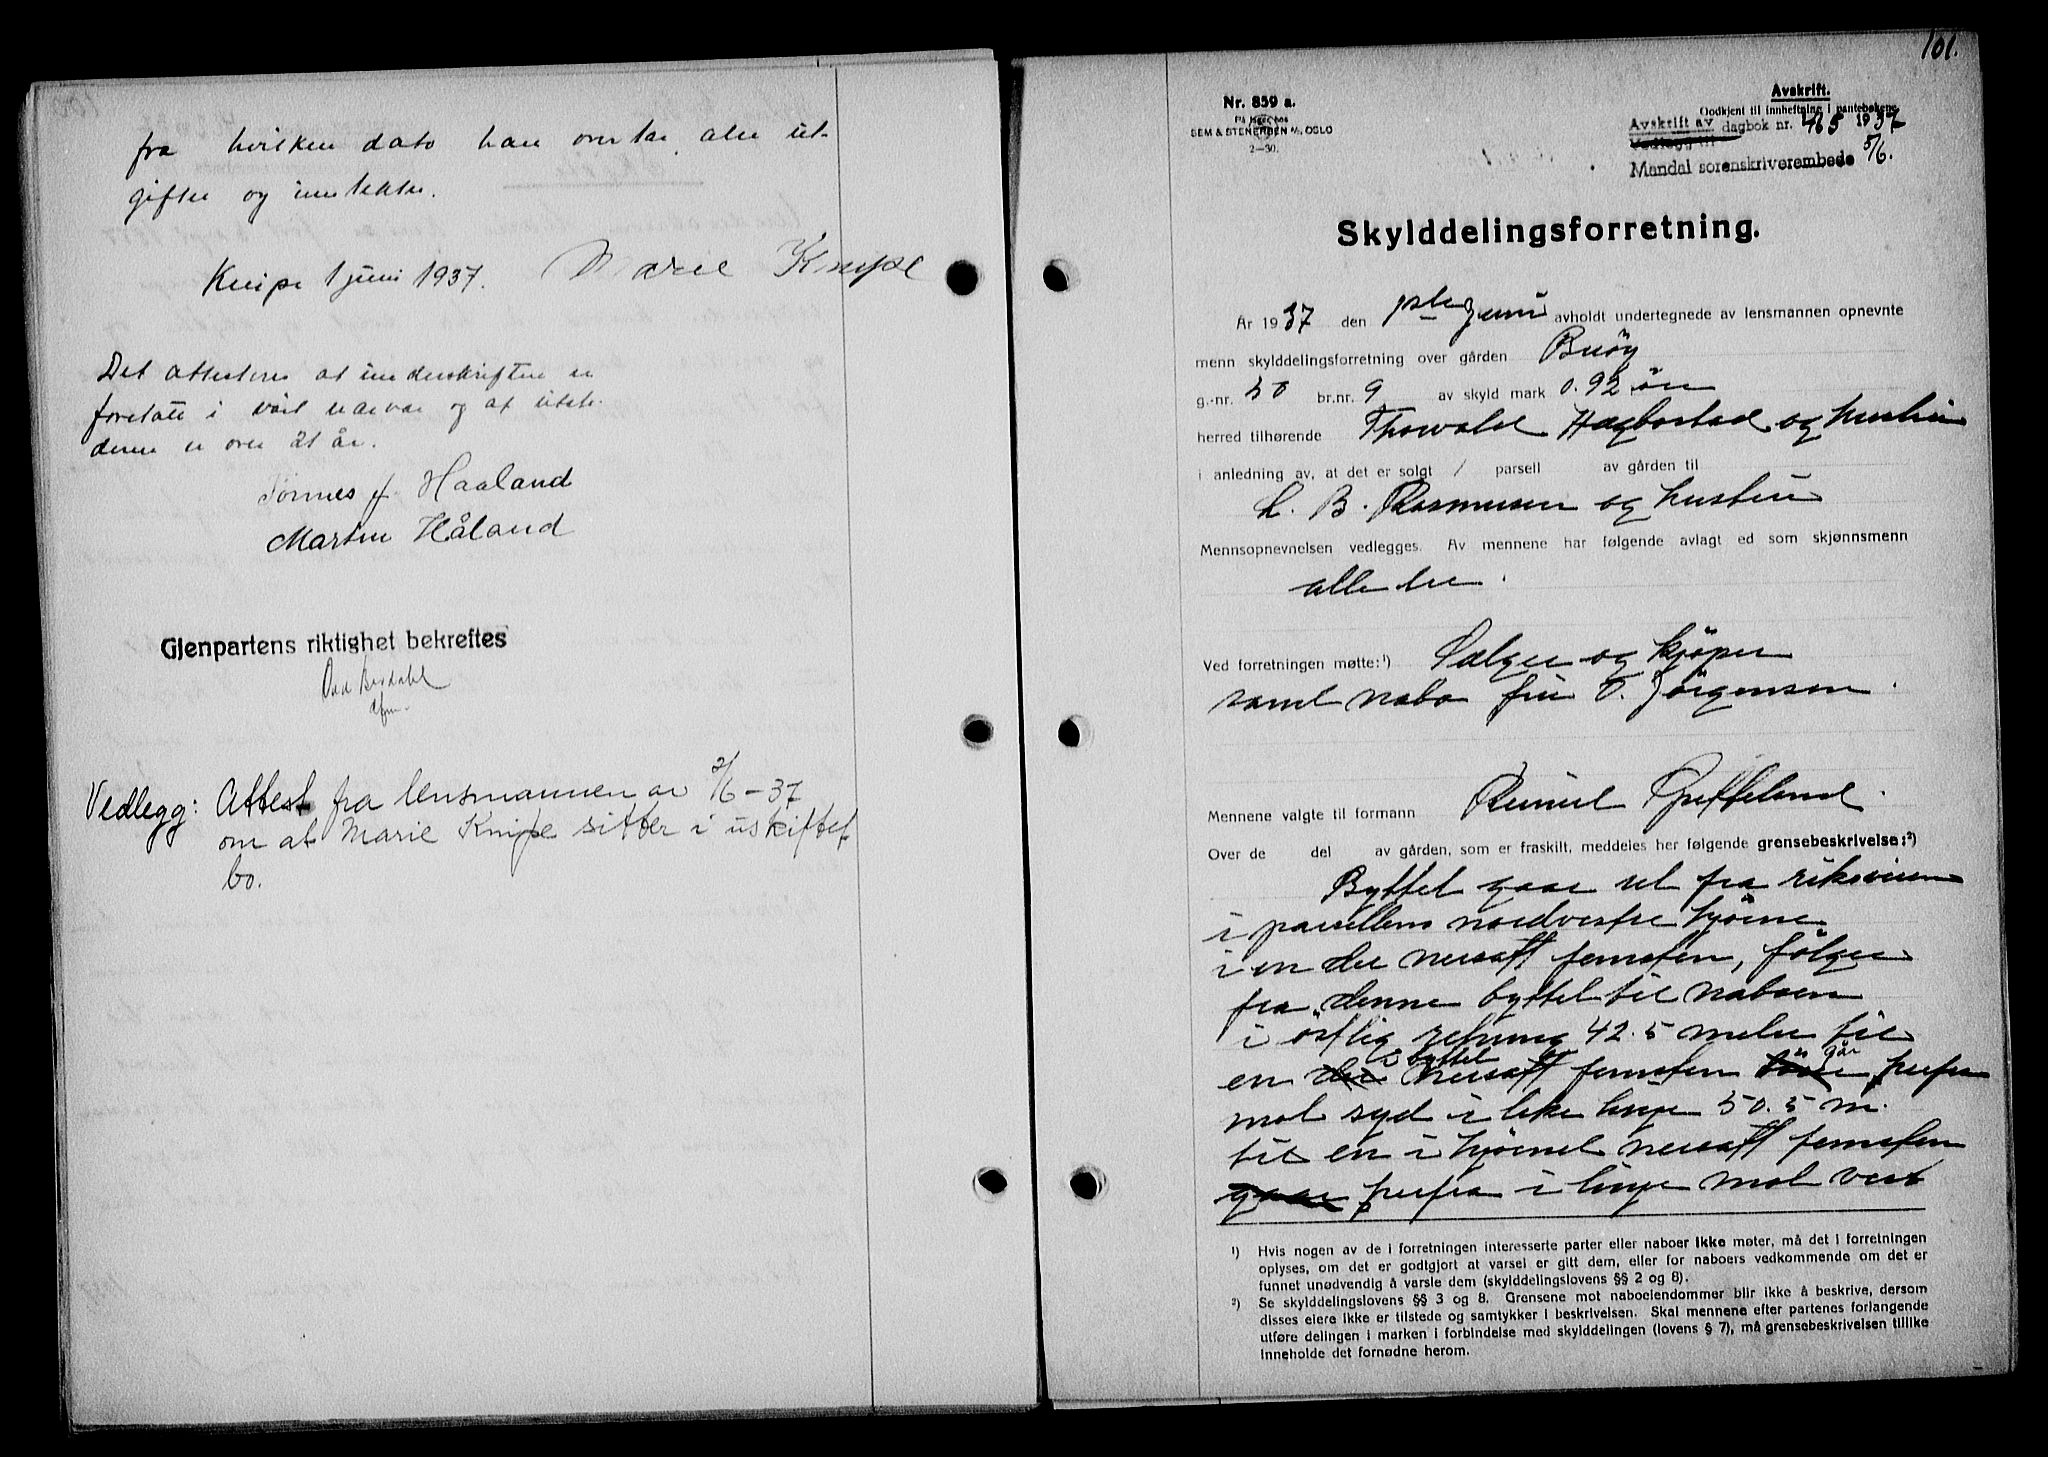 fra hvilken dato han overtar alle ut-
gifter og inntekter.
Knipe 1 juni 1937. Marie Knipe
Det attesteres at underskriften er
foretatt i vårt nærvær og at utste-
deren er over 21 år.
Tønnes J. Haaland
Martin Håland
Gjenpartens riktighet bekreftes
Vedlegg: Attest fra lensmannen av 2/6-37
om at Marie Knipe sitter i uskiftet
bo.
101.
Nr. 859 a.
På lager hos
SEM & STENERSEN A/S, OSLO
2—30.
Avskrift.
Godkjent til innheftning i pantebøkene
Avskrift av dagbok nr. 465 1937
Vedlegg til
Mandal sorenskriverembede 5/6.
Skylddelingsforretning.
År 1937 den 1ste Juni avholdt undertegnede av lensmannen opnevnte
menn skylddelingsforretning over gården Buøy
g.-nr. 50 br.nr. 9 av skyld mark 0.92 øre
herred tilhørende Thorvald Hagbostad og hustru
i anledning av, at det er solgt 1 parsell av gården til
L. B. Rasmusen og hustru
Mennsopnevnelsen vedlegges. Av mennene har følgende avlagt ed som skjønnsmenn
alle tre.
Ved forretningen møtte:¹) Sælger og kjøper
samt nabo fru O. Jørgensen.
Mennene valgte til formann Reinert Gjeffeland.
Over de del av gården, som er fraskilt, meddeles her følgende grensebeskrivelse:²)
Byttet gaar ut fra riksveien
i parsellens nordvestre hjørne
i en der nersatt jernsten, følger
fra denne byttet til naboen
i østlig retning 42.5 meter til
en der i byttet nersatt jernsten går herfra
mot syd i like linje 50.5 m.
til en i hjørnet nersatt jernsten
gaar herfra i linje mot vest
¹) Hvis nogen av de i forretningen interesserte parter eller naboer ikke møter, må det i forretningen
oplyses, om det er godtgjort at varsel er gitt dem, eller for naboers vedkommende om det er
funnet unødvendig å varsle dem (skylddelingslovens §§ 2 og 8).
²) Se skylddelingslovens §§ 3 og 8. Grensene mot naboeiendommer blir ikke å beskrive, dersom
disses eiere ikke er tilstede og samtykker i beskrivelsen. Skal mennene efter partenes forlangende
utføre delingen i marken i forbindelse med skylddelingen (lovens § 7), må grensebeskrivelsen tillike
inneholde det fornødne herom.